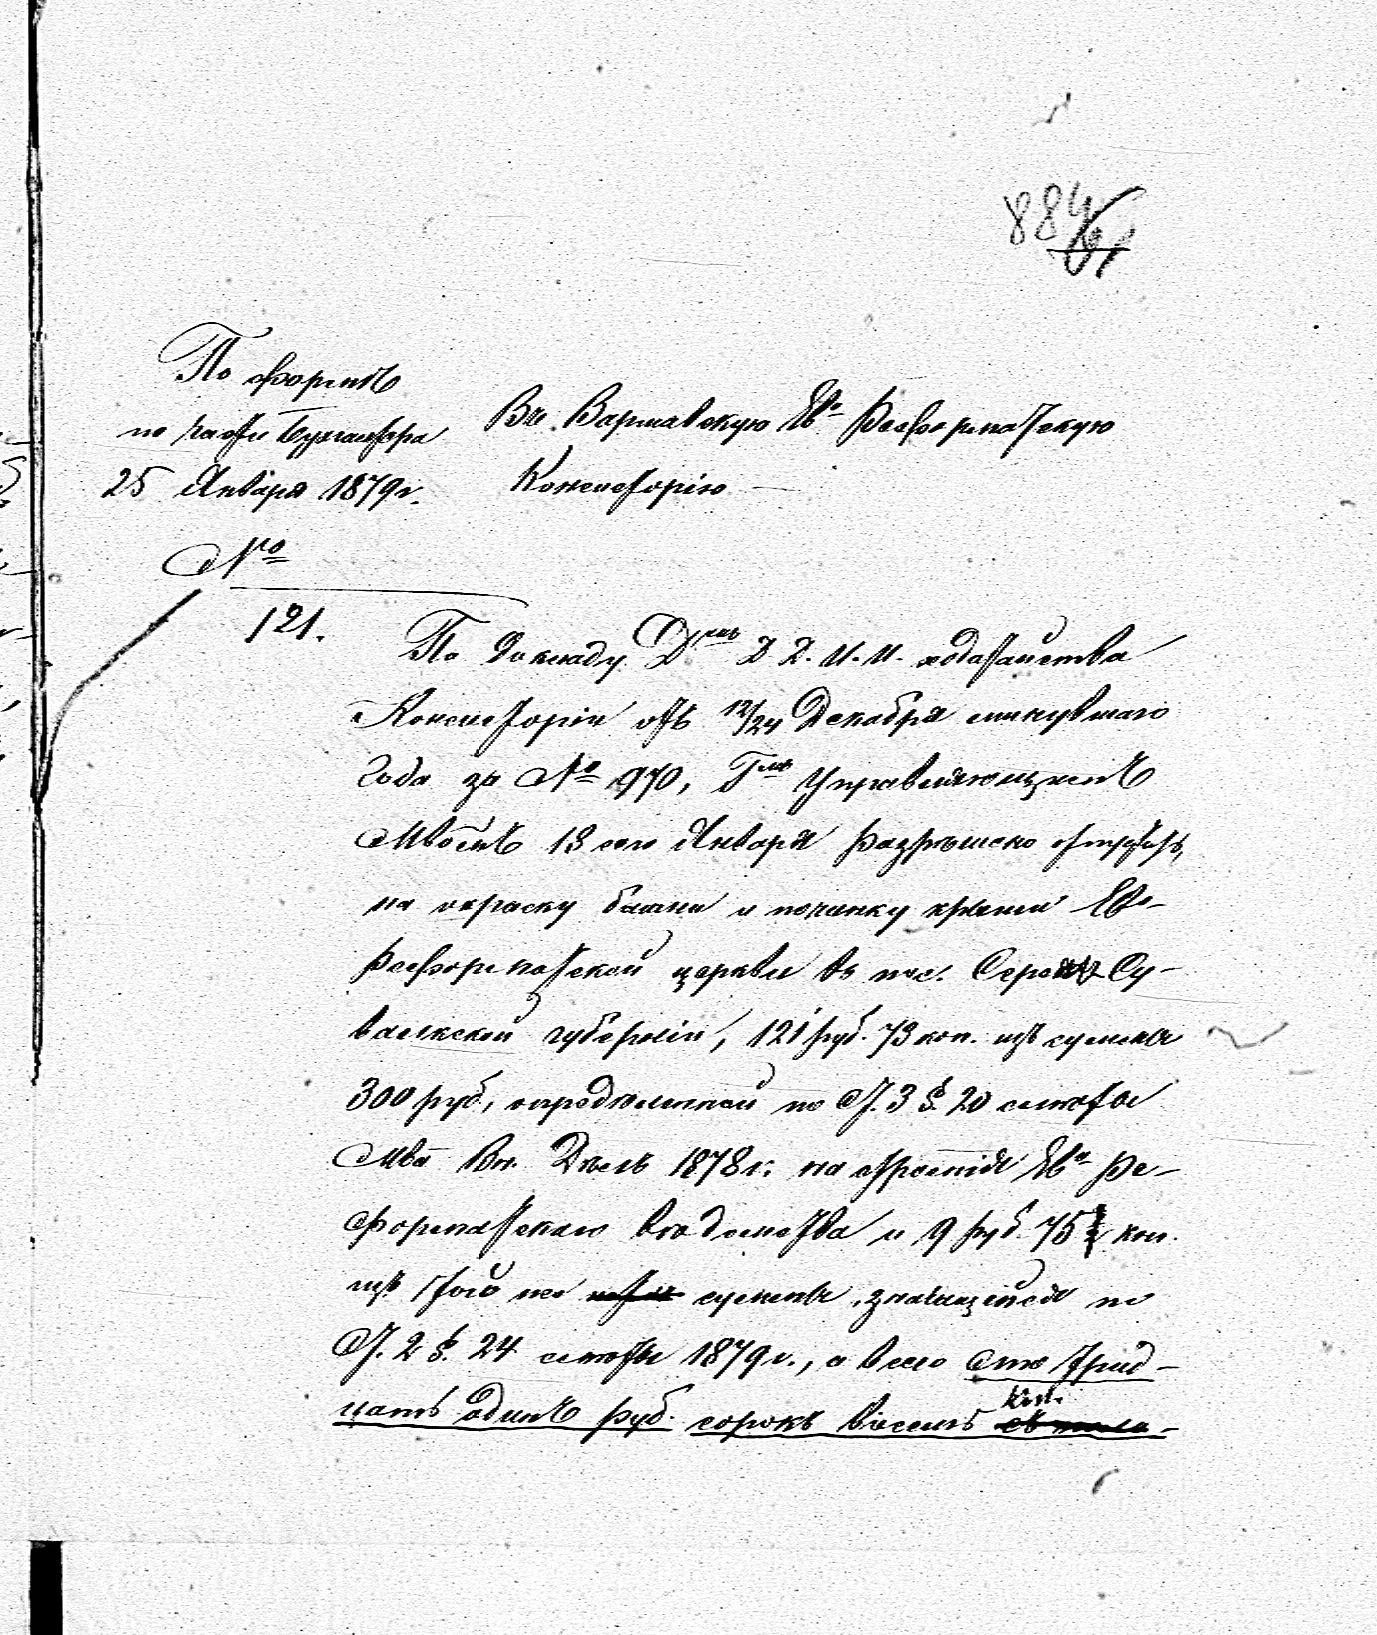 884
По формѣ
по части Бухгалтера
25 Января 1879 г.
№
121.
Въ Варшавскую Ев. Реформатскую
Консисторію
По докладу Д. Д. И. И. ходатайства
Консисторіи отъ 12/24 Декабря минувшаго
года за № 970, Г. Управляющимъ
Мвомъ 13 сего Января разрѣшено
на окраску башни и починку крыши Ев.
Реформатской церкви въ пос. Сув-
алкской губерніи, 121 руб. 73 коп. изъ суммы
300 руб., опредѣленной по ст. 3 §. 20 смѣты
Мва Вн. Дѣлъ 1878 г. на строенія Ев. Ре-
форматскаго вѣдомства и 9 руб. 75 коп.
изъ той же суммы, значащейся по
ст. 2 §. 24 смѣты 1879 г., а всего сто трид-
цать одинъ руб. сорокъ восемь коп.